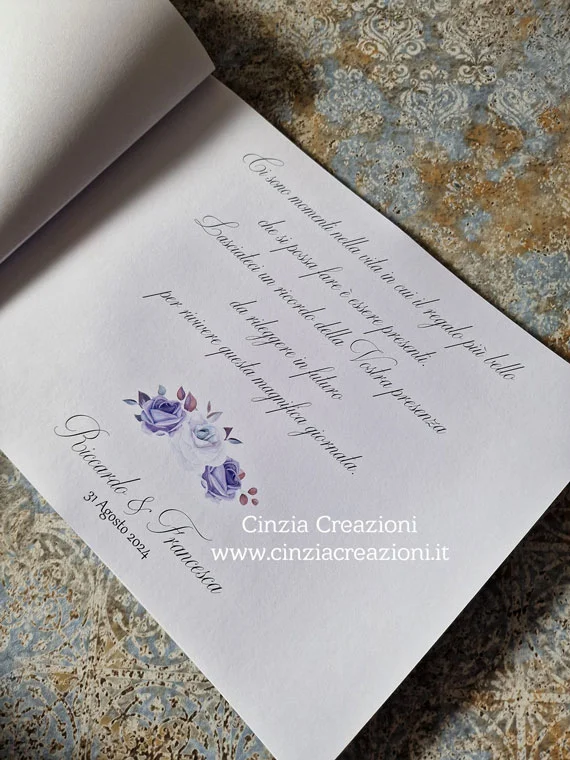 Ci sono momenti nella vita in cui il regalo più bello
che si possa fare è essere presenti.
Lasciateci un ricordo della Vostra presenza
da rileggere in futuro
per rivivere questa magnifica giornata.
Riccardo & Francesca
31 Agosto 2024
Cinzia Creazioni
www.cinziacreazioni.it